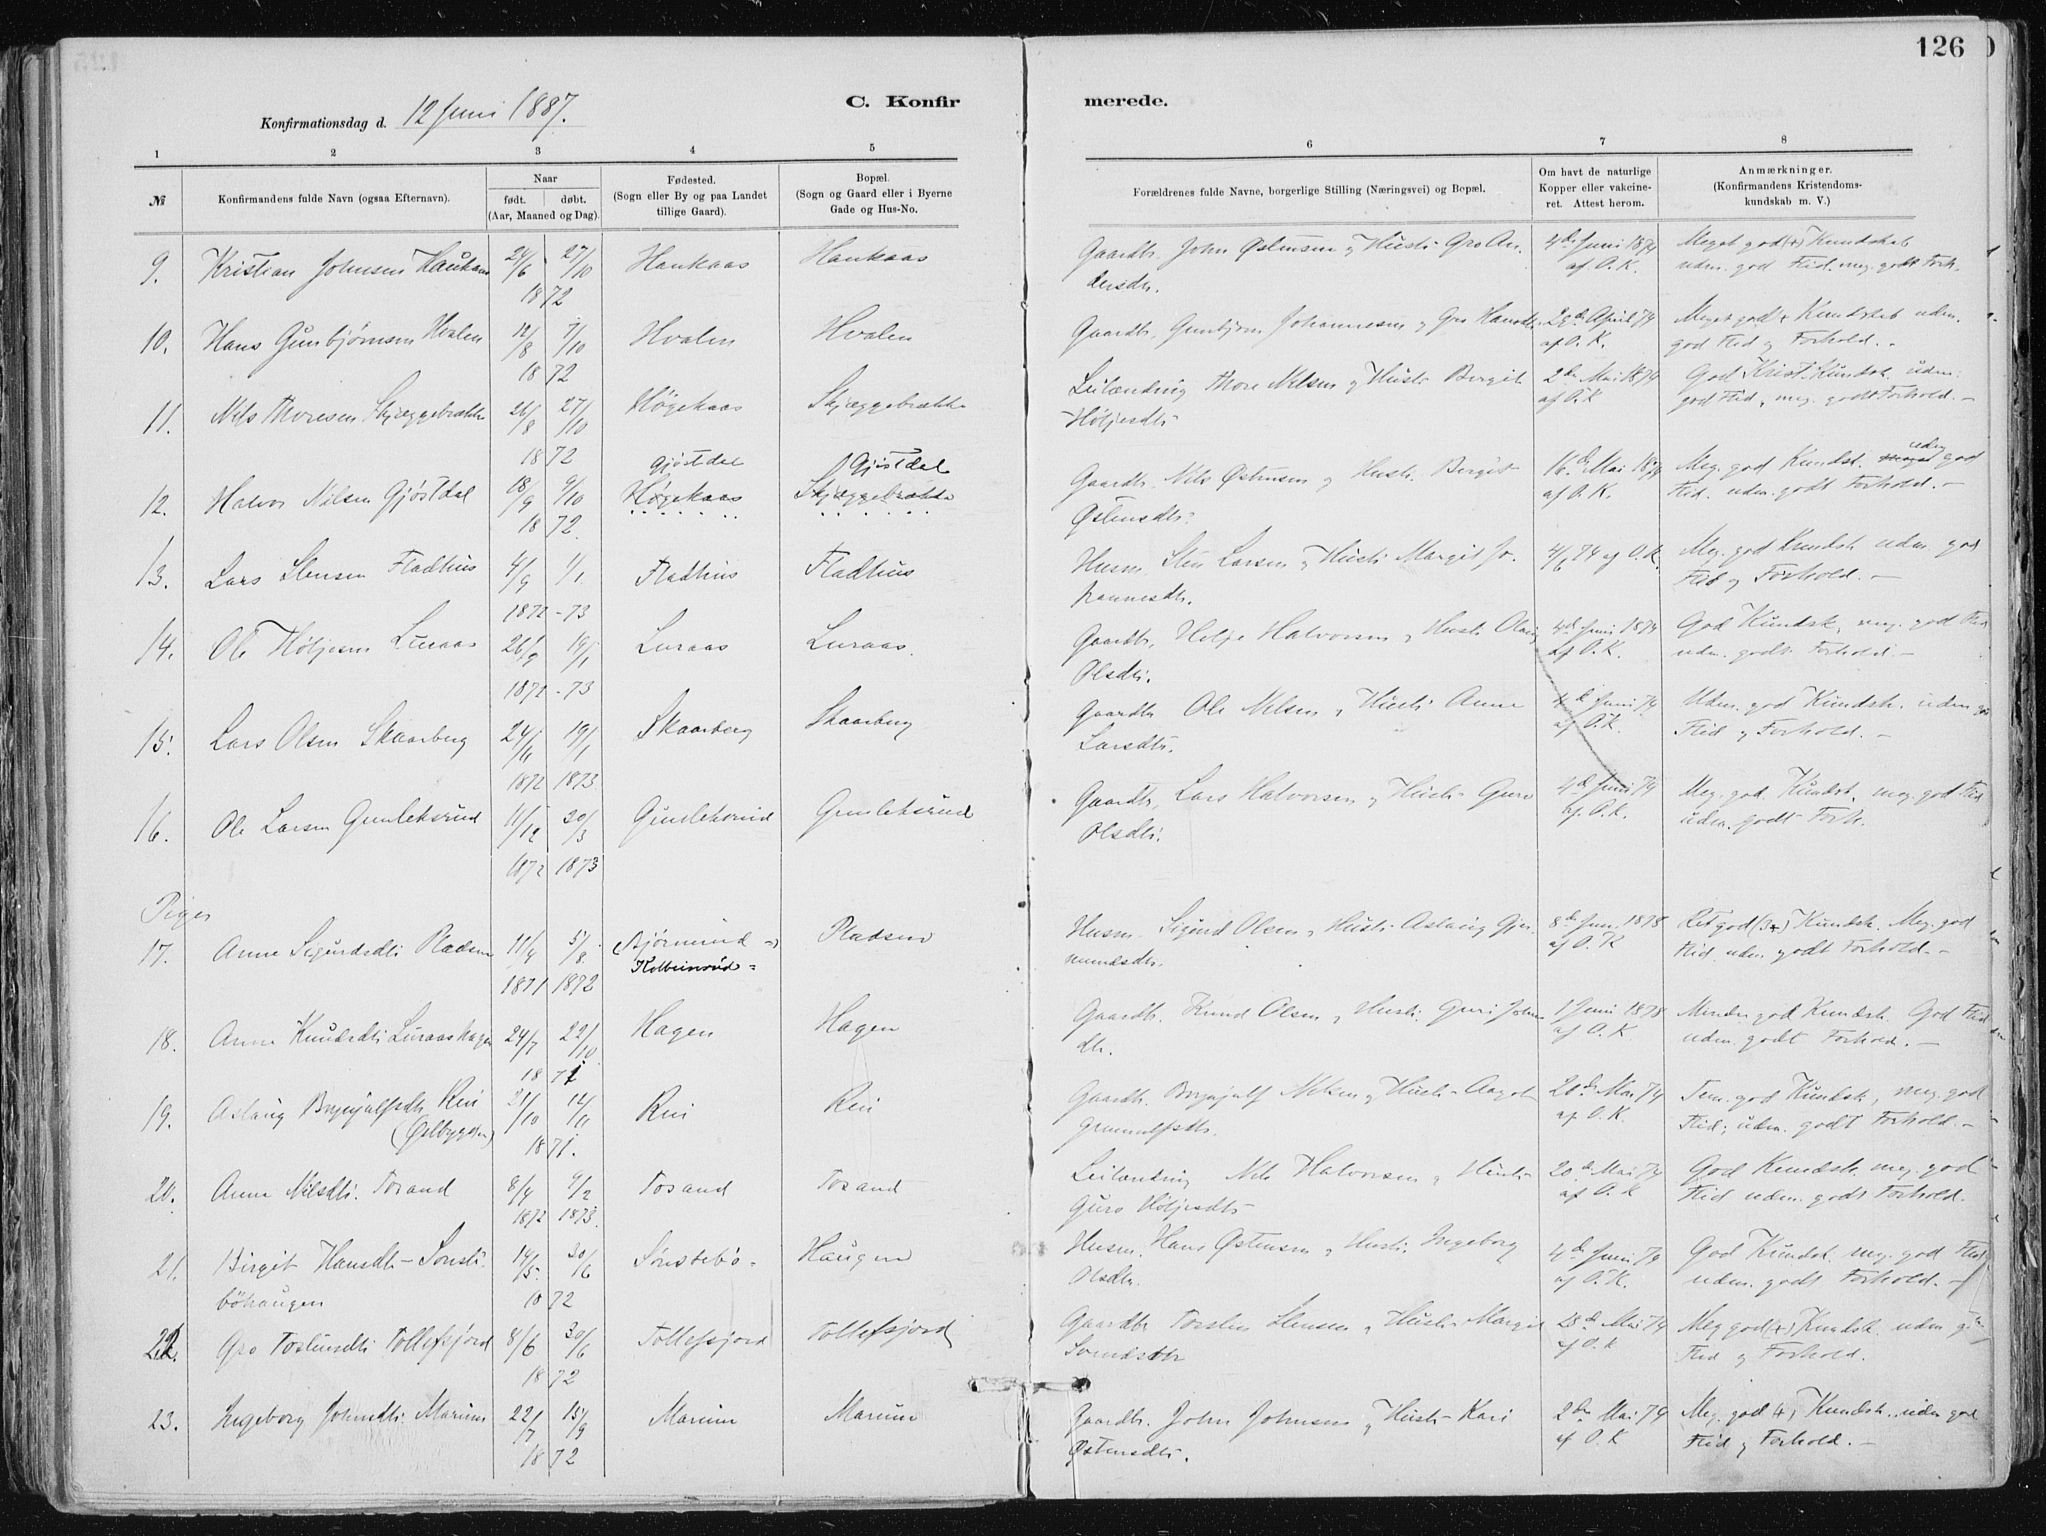 126
C. Konfir merede.
Konfirmationsdag d. 12 Juni 1887.
1 2 3 4 5 6 7 8
№ Konfirmandens fulde Navn (ogsaa Efternavn). Naar født. døbt. (Aar, Maaned og Dag). Fødested. (Sogn eller By og paa Landet tillige Gaard). Bopæl. (Sogn og Gaard eller i Byerne Gade og Hus-No. Forældrenes fulde Navne, borgerlige Stilling (Næringsvei) og Bopæl. Om havt de naturlige Kopper eller vakcineret. Attest herom. Anmærkninger. (Konfirmandens Kristendomskundskab m. V.)
9. Kristian Johnsen Haukaas 24/6 27/10 Haukaas Haukaas Gaardb. John Østensen & Hustr. Gro An- 4de Juni 1874 Meget god (+) Kundskab
1872 dersdtr. af O. K. udm. god Flid. meg. godt Forh.
10. Hans Gunbjørnsen Hvalen 12/8 7/10 Hvalen Hvalen Gaardb. Gunbjørn Johannesen & Gro Hansdtr. 28de April 74 Meget god + Kundskab udm.
1872 af O. K. god Flid & Forhold.
11. Nils Thoresen Skjæggebrække 26/8 27/10 Høgekaas Skjæggebrække Leilænding Thore Nilsen & Hustr. Bergit 2de Mai 1874 God Krist. Kundsk. udm.
1872 Höljesdtr. af O. K god Flid, meg. godt Forhold. -
Gjöstdal Gjöstdal
12. Halvor Nilsen Gjöstdal 18/9 9/10 Høgekaas Skjæggebrække Gaardb. Nils Østensen & Hustr. Bergit 16de Mai 1874 Meg. god Kundsk. meget udm. god
1872. Østensdtr. af O. K. Flid. udm. godt Forhold. -
13. Lars Stensen Fladhus 4/9 1/1 Fladhus Fladhus Husm. Sten Larsen & Hustr. Margit Jo- 4/6 74 af O. K. Meg. god Kundsk. udm. god
1872 - 73 hannesdtr. Flid & Forhold. -
14. Ole Höljesen Luraas 26/9 19/1 Luraas Luraas. Gaardb. Helje Halvorsen & Hustr. Olaug 4de Juni 1874 God Kundsk, meg. god Flid
1872 - 73 Olsdtr. af O. K. udm. godt Forhold. -
15. Lars Olsen Skaarberg 24/11 19/1 Skaarberg Skaarberg Gaardb. Ole Nilsen & Hustr. Anne 4de Juni 74 Udm. god Kundsk. udm. god
1872 1873. Larsdtr. af O. K. Flid & Forhold. -
16. Ole Larsen Gunleksrud 11/12 30/3 Gunleksrud Gunleksrud Gaardb. Lars Halvorsen & Hustr. Guro 4de Juni 74 Meg. god Kundsk, meg. god Flid
1872 1873 Olsdtr. af. O. K. udm. godt Forh.
Piger
17. Anne Sigurdsdtr. Pladsen 11/9 5/8. (Bjørnerud) Pladsen Husm. Sigurd Olsen & Hustr. Aslaug Gjer- 8de Juni 1878 Ret god (3+) Kundsk. Meg. god
1871 1872 Kolbeinsrud mundsdtr. af O. K Flid. udm. godt Forhold. -
18. Anne Knudsdtr Luraashagen 24/7 22/10 Hagen Hagen Gaardb. Knud Olsen & Hustr. Guri Johns- 1 Juni 1878 Mindre god Kundsk. God Flid
1871 dtr. af O. K. udm. godt Forhold. -
19. Aslaug Brynjulfsdtr. Rui 21/10 12/11 Rui Rui Gaardb. Brynjulf Nilsen & Hustr. Aagot 20de Mai 74 Tem. god Kundsk, meg. god
(Østbygden) 1871. Grunulfsdtr. af O. K. Flid; udm. godt Forhold. -
20. Anne Nilsdtr. Tosand 8/9 9/2 Tosand Tosand Leilænding Nils Halvorsen & Hustr. 20de Mai 74 God Kundsk. meg. god
1872 1873. Guro Höljesdtr. af O. K Flid udm. godt Forhold.
21. Birgit Hansdtr. Sønste- 14/5. 30/6 Sønstebø. Haugen Husm. Hans Østensen & Hustr. Ingeborg 4de Juni 74 God Kundsk. meg. god Flid
böhaugen 1872 Olsdtr. af O. K. udm. godt Forhold. -
22. Gro Torsteinsdtr Tollefsjord 8/6 30/6 Tollefsjord Tollefsjord Gaardb Torsten Stensen & Hustr. Margit 28de Mai 74 Meg god (+) Kundsk. udm god
1872 Svendsdtr af O. K Flid & Forhold.
23. Ingeborg Johnsdtr. Marum 22/7 15/9 Marum Marum Gaardb. John Johnsen & Hustr. Kari 2den Mai 74 Meg. god (+) Kundsk. udm god
1872 Østensdtr. af O. K Flid & Forhold. -